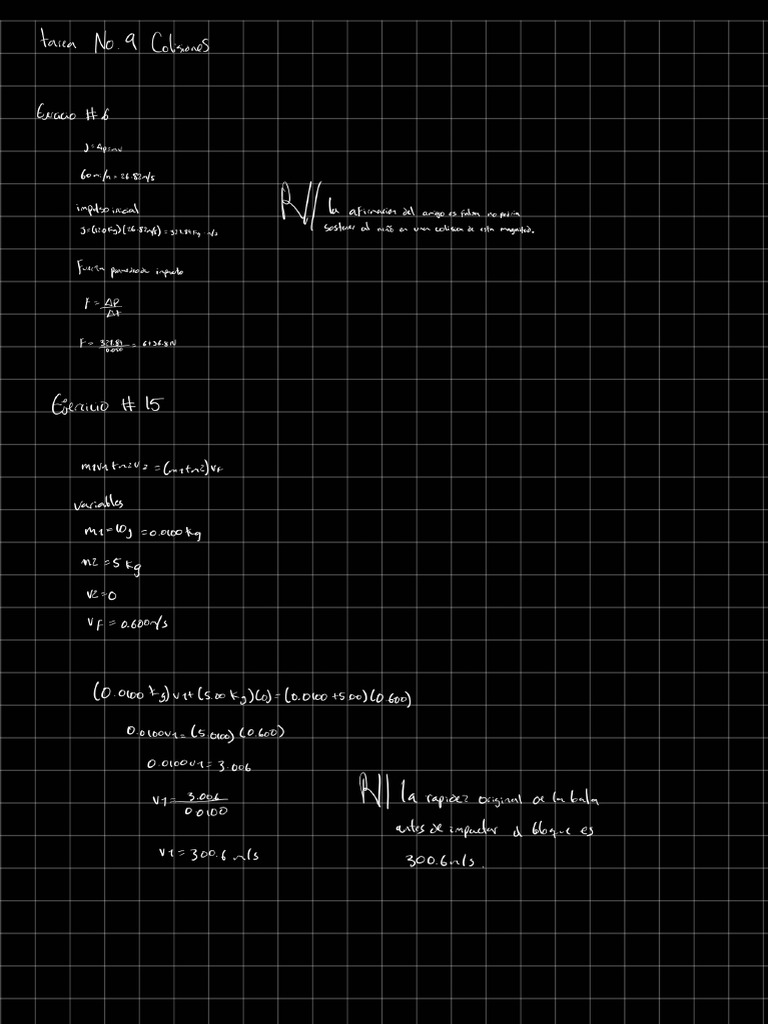 tarea No. 9 Colisiones
Ejercicio # 6
J = Δp = mv
60 mi/h = 26.82 m/s
impulso inicial
J = (12.0 kg)(26.82 m/s) = 321.84 kg m/s
Fuerza promedio de impacto
F = ΔP / Δt
F = 321.84 / 0.050 = 6436.8 N
R// la afirmacion del amigo es falsa no podria
sostener al niño en una colision de esta magnitud.
Ejercicio # 15
m1v1 + m2v2 = (m1+m2)vf
variables
m1 = 10g = 0.0100 kg
m2 = 5 kg
v2 = 0
vf = 0.600 m/s
(0.0100 kg)v1 + (5.00 kg)(0) = (0.0100 + 5.00)(0.600)
0.0100v1 = (5.0100)(0.600)
0.0100v1 = 3.006
v1 = 3.006 / 0.0100
v1 = 300.6 m/s
R// la rapidez original de la bala
antes de impactar el bloque es
300.6 m/s.